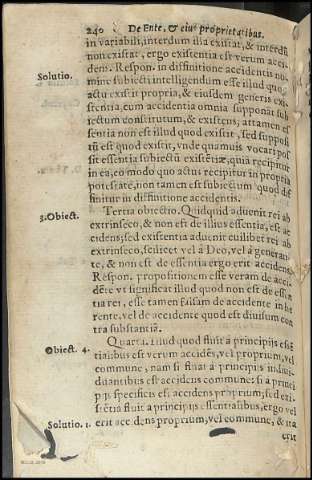 240 De Ente, & eius proprietatibus.
in variabili, interdum illa existat, & interdũ
non existat, ergo existentia est verum acci-
dens. Respon. in diffinitione accidentis no-
Solutio.
mine subiecti intelligendum esse illud quod
actu existit propria, & eiusdem generis exi-
stentia, cum accidentia omnia supponãt sub
iectum constitutum, & existens, attamen es
sentia non est illud quod existit, sed supposi
tũ est quod existit, vnde quamuis vocari pos
sit essentia subiectũ existẽtiæ, quia recipitur
in ea, eo modo quo actus recipitur in propria
potestate, non tamen est subiectum quod dif
finitur in diffinitione accidentis.
3. Obiect.
Tertia obiectio. Quidquid aduenit rei ab
extrinseco, & non est de illius essentia, est ac
cidens; sed existentia aduenit cuilibet rei ab
extrinseco, scilicet vel à Deo, vel à generan-
te, & non est de essentia ergo erit accidens.
Respon. propositionem esse veram de acci-
dẽte vt significat illud quod non est de essẽ
tia rei, esse tamen falsam de accidente in hę
rente, vel de accidente quod est diuisum con
tra substantiã.
Obiect. 4.
Quarta. illud quod fluit à principijs essẽ
tialibus est verum accidẽs, vel proprium, vel
commune, nam si fluat à principijs indiui-
duantibus est accidens commune: si à princi
pijs specificis est accidens proprium; sed exi-
stẽtia fluit à principijs essentialibus, ergo vel
Solutio. 1.
erit accidens proprium, vel commune, & ita
erit